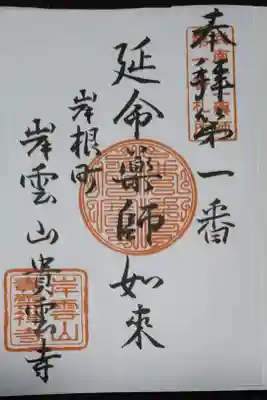 奉拝第一番
延命薬師如来
岸根町
岸雲山貴雲寺
岸雲山
貴雲禅寺